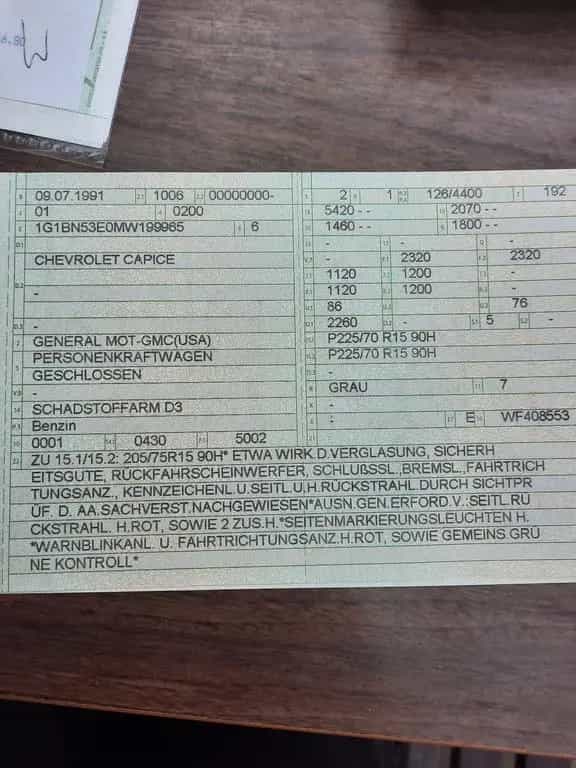 09.07.1991 1006 00000000-
01 0200
1G1BN53E0MW199965 6
CHEVROLET CAPICE
-
-
GENERAL MOT-GMC(USA)
PERSONENKRAFTWAGEN
GESCHLOSSEN
-
SCHADSTOFFARM D3
Benzin
0001 0430 5002
2 1 126/4400 192
5420 - - 2070 - -
1460 - - 1800 - -
- - -
- 2320 2320
1120 1200 -
1120 1200 -
86 - 76
2260 - 5 -
P225/70 R15 90H
P225/70 R15 90H
-
GRAU 7
-
: E WF408553
ZU 15.1/15.2: 205/75R15 90H* ETWA WIRK.D.VERGLASUNG, SICHERH
EITSGUTE, RÜCKFAHRSCHEINWERFER, SCHLUßSSL.,BREMSL.,FAHRTRICH
TUNGSANZ., KENNZEICHENL.U.SEITL.U.H.RÜCKSTRAHL.DURCH SICHTPR
ÜF. D. AA.SACHVERST.NACHGEWIESEN*AUSN.GEN.ERFORD.V.:SEITL.RÜ
CKSTRAHL. H.ROT, SOWIE 2 ZUS.H.*SEITENMARKIERUNGSLEUCHTEN H.
*WARNBLINKANL. U. FAHRTRICHTUNGSANZ.H.ROT, SOWIE GEMEINS GRÜ
NE KONTROLL*